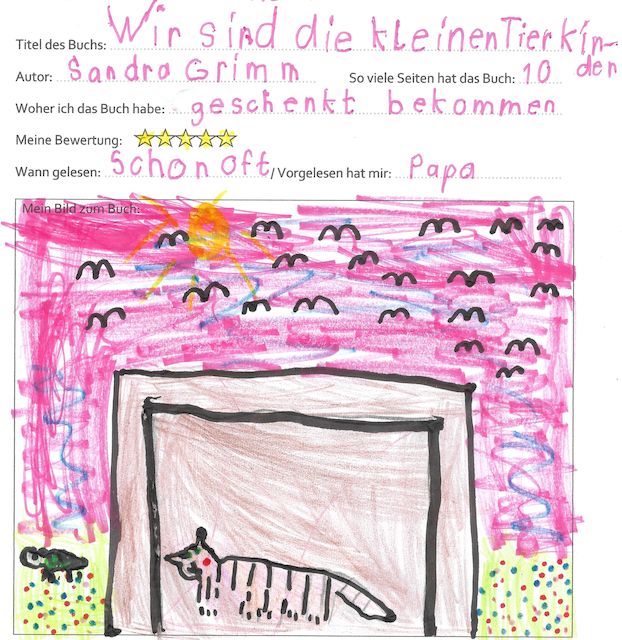 Titel des Buchs: Wir sind die kleinen Tierkin-
den
Autor: Sandra Grimm So viele Seiten hat das Buch: 10
Woher ich das Buch habe: geschenkt bekommen
Meine Bewertung:
Wann gelesen: Schon oft / Vorgelesen hat mir: Papa
Mein Bild zum Buch: